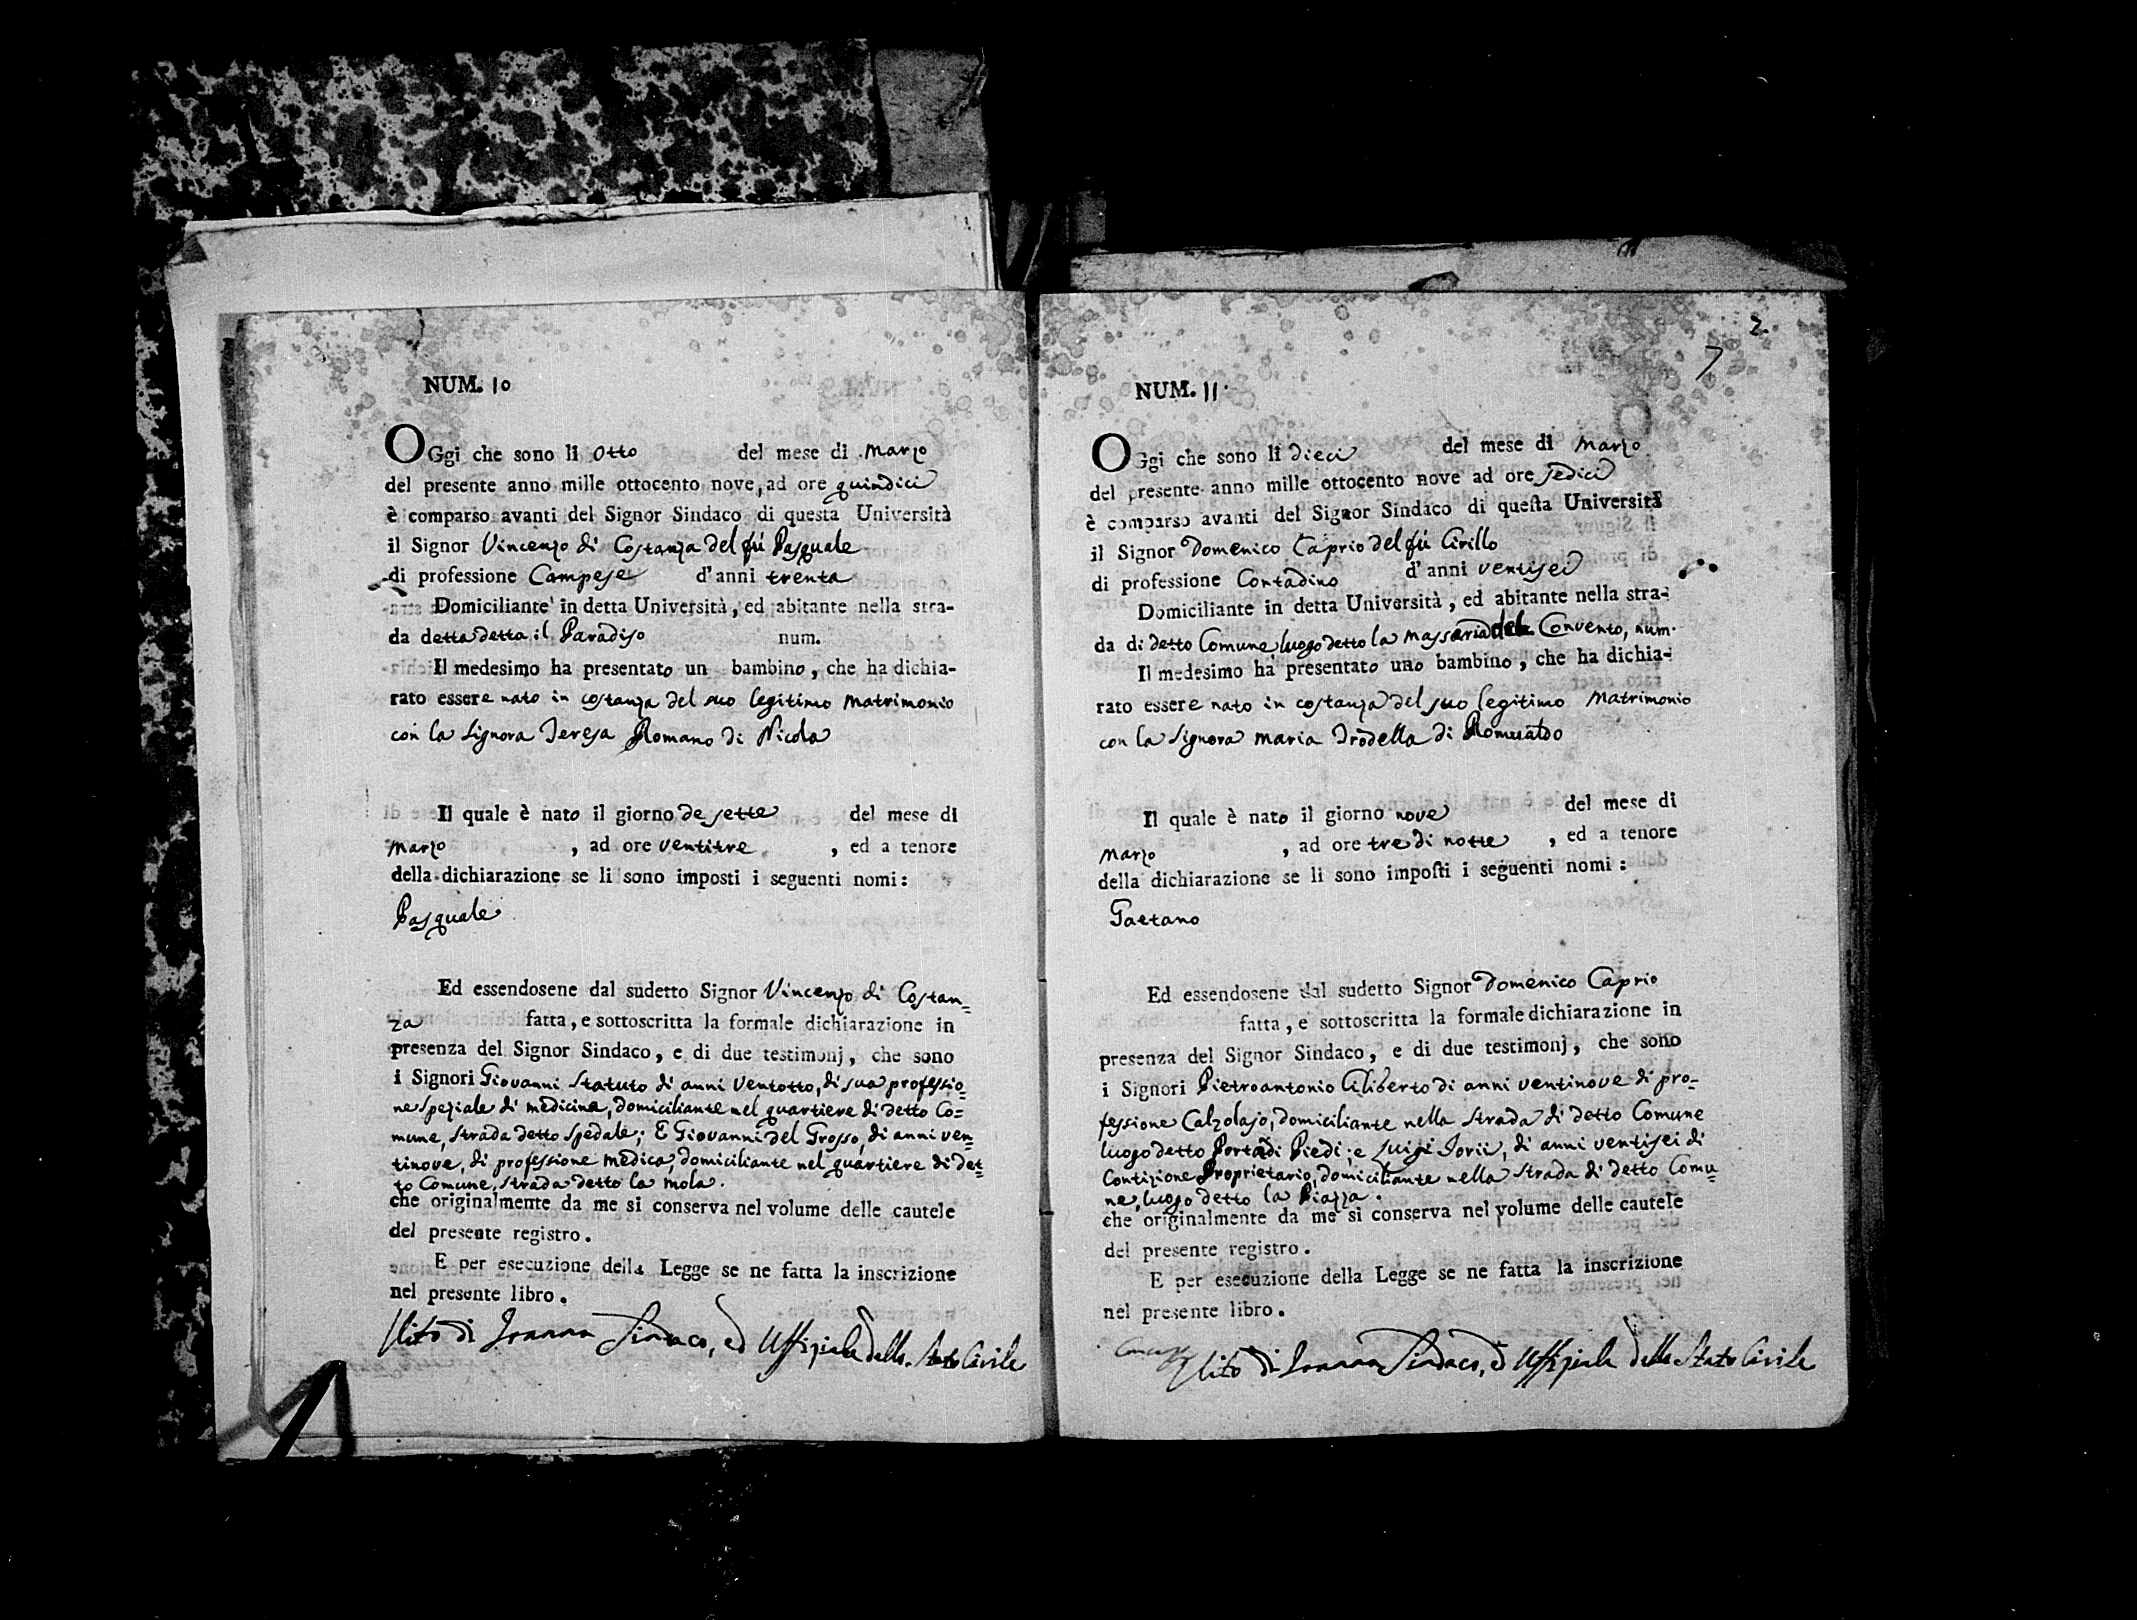 NUM. 10
OGgi che sono li otto del mese di Marzo
del presente anno mille ottocento nove, ad ore quindici
è comparso avanti del Signor Sindaco di questa Università
il Signor Vincenzo di Costanza del fù Pasquale
di professione Campese d'anni trenta
Domiciliante in detta Università, ed abitante nella stra-
da detta detta il Paradiso num.
Il medesimo ha presentato un bambino, che ha dichia-
rato essere nato in costanza del suo legitimo Matrimonio
con la Signora Teresa Romano di Nicola
Il quale è nato il giorno de sette del mese di
Marzo, ad ore ventitre, ed a tenore
della dichiarazione se li sono imposti i seguenti nomi:
Pasquale
Ed essendosene dal sudetto Signor Vincenzo di Costan=
za fatta, e sottoscritta la formale dichiarazione in
presenza del Signor Sindaco, e di due testimonj, che sono
i Signori Giovanni Statuto di anni Ventotto, di sua professio=
ne speziale di medicina, domiciliante nel quartiere di detto Co=
mune, strada detto Spedale; E Giovanni del Grosso, di anni ven=
tinove, di professione Medica, domiciliante nel quartiere di det=
to Comune, strada detto la Mola.
che originalmente da me si conserva nel volume delle cautele
del presente registro.
E per esecuzione della Legge se ne fatta la inscrizione
nel presente libro.
Vito di Sindaco, ed Uffiziale dello Stato Civile
2
7
NUM. 11
OGgi che sono li dieci del mese di Marzo
del presente anno mille ottocento nove ad ore sedici
è comparso avanti del Signor Sindaco di questa Università
il Signor Domenico Caprio del fù Cirillo
di professione Contadino d'anni ventisei
Domiciliante in detta Università, ed abitante nella stra-
da di detto Comune, luogo detto la Massaria del Convento, num.
Il medesimo ha presentato uno bambino, che ha dichia-
rato essere nato in costanza del suo legitimo Matrimonio
con la Signora Maria Trodella di Romualdo
Il quale è nato il giorno nove del mese di
Marzo, ad ore tre di notte, ed a tenore
della dichiarazione se li sono imposti i seguenti nomi:
Gaetano
Ed essendosene dal sudetto Signor Domenico Caprio
fatta, e sottoscritta la formale dichiarazione in
presenza del Signor Sindaco, e di due testimonj, che sono
i Signori Pietroantonio Ciliberto di anni ventinove di pro=
fessione Calzolajo, domiciliante nella strada di detto Comune
luogo detto Porta di Piedi; e Luigi Iorii, di anni ventisei di
Contizione Proprietario, domiciliante nella strada di detto Comu=
ne, luogo detto la Piazza.
che originalmente da me si conserva nel volume delle cautele
del presente registro.
E per esecuzione della Legge se ne fatta la inscrizione
nel presente libro.
Vito di Sindaco, ed Uffiziale dello Stato Civile